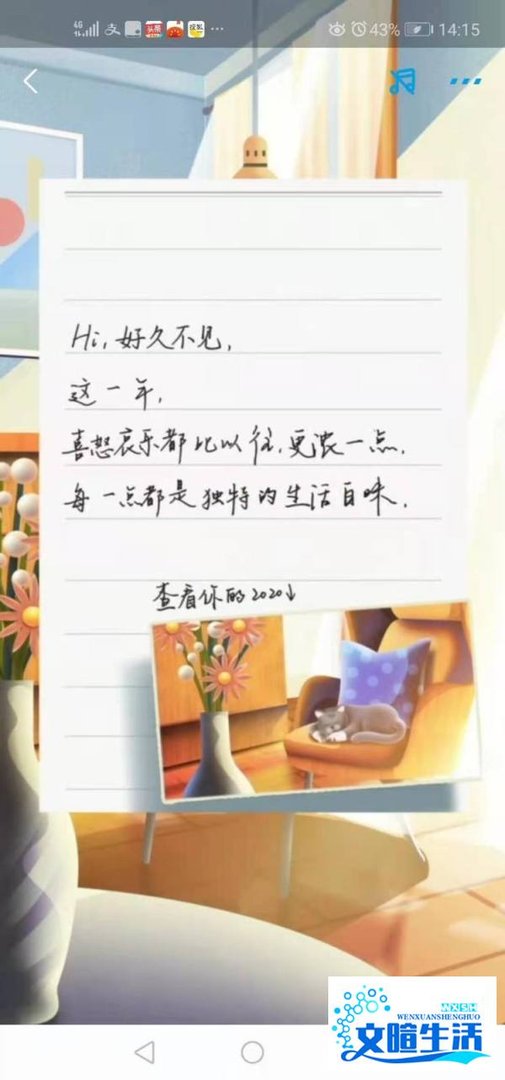 4G
43%
14:15
Hi,好久不见,
这一年,
喜怒哀乐都比以往,更浓一点.
每一点都是独特的生活自味.
查看你的2020↓
WXSH
WENXUANSHENGHUO
文暄生活